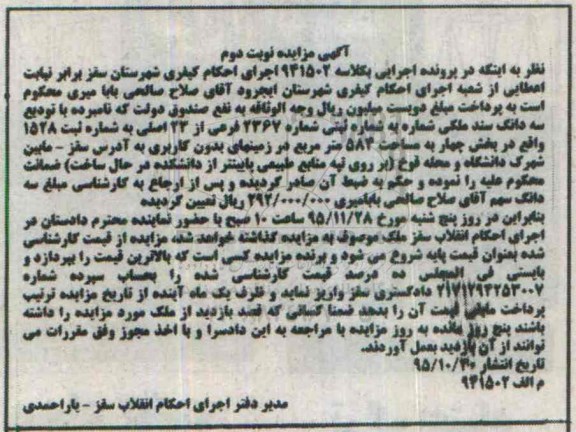 آگهی مزایده نوبت دوم
نظر به اینکه در پرونده اجرایی بکلاسه ۹۴۱۵۰۲ اجرای احکام کیفری شهرستان سقز برابر نیابت
اعطایی از شعبه اجرای احکام کیفری شهرستان ایجرود آقای صلاح صالحی بابا میری محکوم
است به پرداخت مبلغ دویست میلیون ریال وجه الوثاقه به نفع صندوق دولت که نامبرده با تودیع
سه دانگ سند ملکی شماره با شماره ثبتی شماره ۲۳۶۷ فرعی از ۲۳ اصلی به شماره ثبت ۱۵۲۸
واقع در بخش چهار به مساحت ۵۸۳ متر مربع در زمینهای بدون کاربری به آدرس سقز - مابین
شهرک دانشگاه و محله قوخ (بر روی تپه منابع طبیعی پایینتر از دانشکده در حال ساخت) ضمانت
محکوم علیه را نموده و حکم به ضبط آن صادر گردیده و پس از ارجاع به کارشناسی مبلغ سه
دانگ سهم آقای صلاح صالحی بابامیری ۲۹۲/۰۰۰/۰۰۰ ریال تعیین گردیده
بنابراین در روز پنج شنبه مورخ ۹۵/۱۱/۲۸ ساعت ۱۰ صبح با حضور نماینده محترم دادستان در
اجرای احکام انقلاب سقز ملک موصوف به مزایده گذاشته خواهد شد، مزایده از قیمت کارشناسی
شده بعنوان قیمت پایه شروع می شود و برنده مزایده کسی است که بالاترین قیمت را بپردازد و
بایستی فی المجلس ده درصد قیمت کارشناسی شده را بحساب سپرده شماره
۲۱۷۱۲۹۴۲۵۳۰۰۷ دادگستری سقز واریز نماید و ظرف یک ماه آینده از تاریخ مزایده ترتیب
پرداخت مابقی قیمت آن را بدهد ضمنا کسانی که قصد بازدید از ملک مورد مزایده را داشته
باشند پنج روز مانده به روز مزایده با مراجعه به این دادسرا و با اخذ مجوز وفق مقررات می
توانند از آن بازدید بعمل آوردند.
تاریخ انتشار ۹۵/۱۰/۳۰
م الف ۹۴۱۵۰۲
مدیر دفتر اجرای احکام انقلاب سقز - یاراحمدی